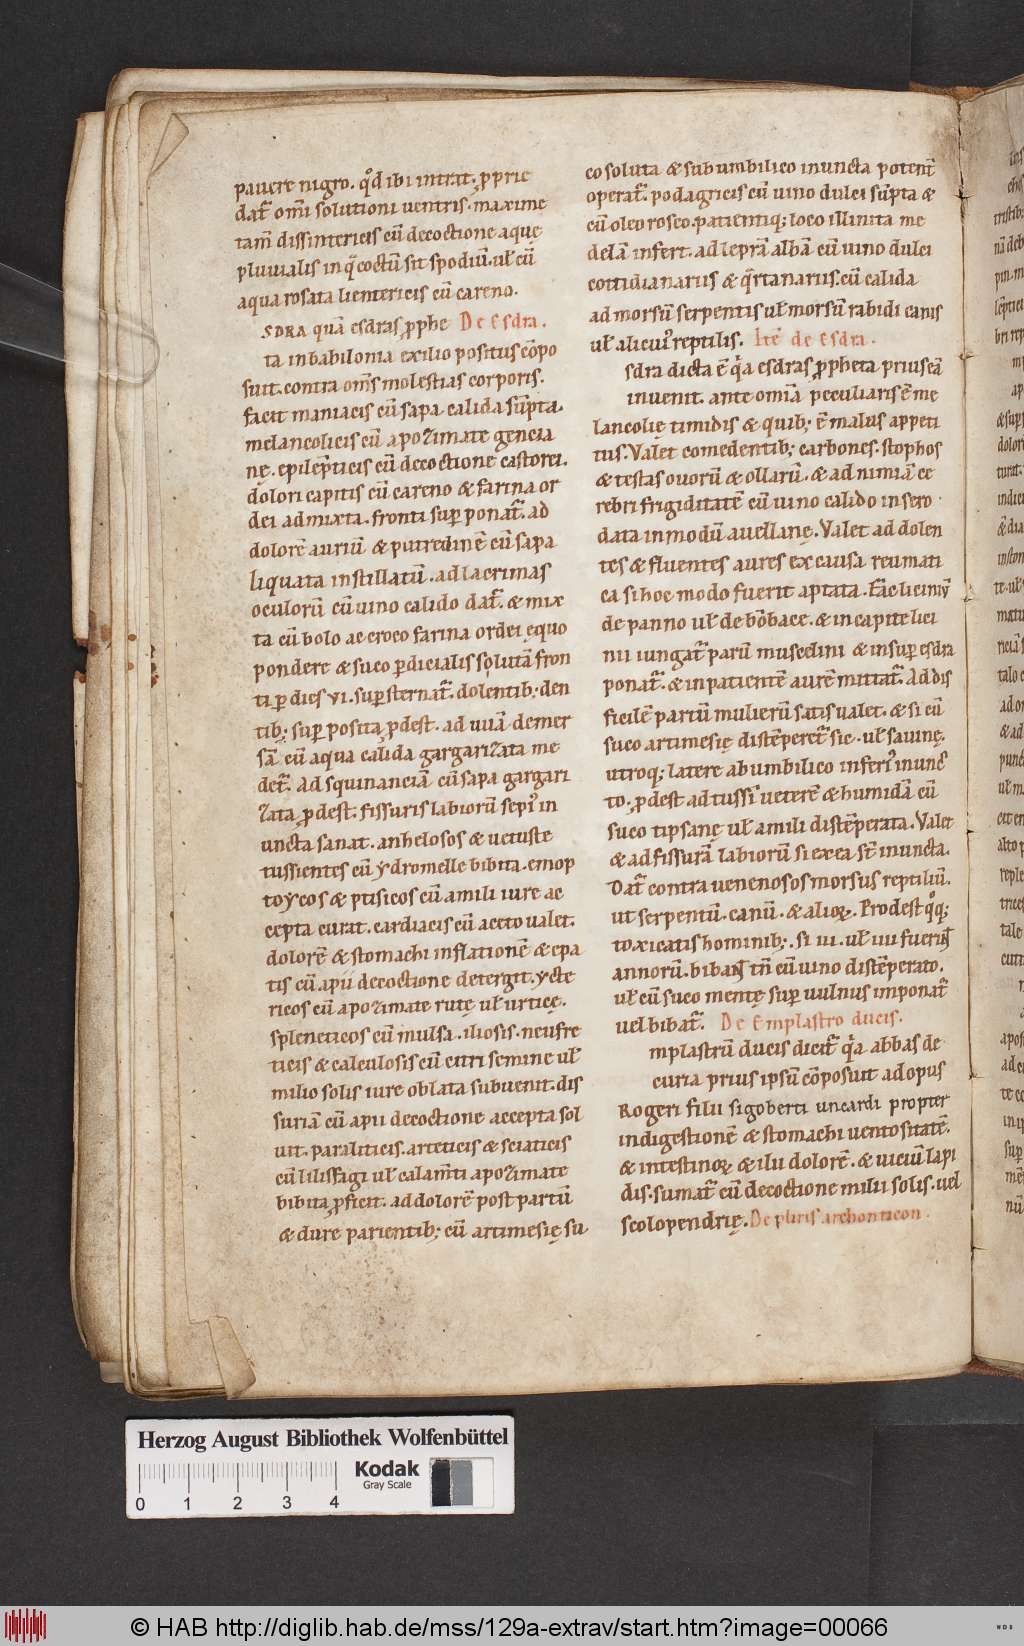 pauere nigro. qd̾ ibi intrat. ꝓprie
dat̄ om̄i solutioni uentris. maxime
tam̄ dissintericis cū decoctione aquę
pluuialis in q̄ coctū sit spodiū. uł cū
aqua rosata lientericis cū careno.
SDRA quā esdras ꝓphe De Esdra.
ta in babilonia exilio positus cōpo
suit. contra om̄s molestias corporis.
facit maniacis cū sapa calida sūpta.
melancolicis cū apozimate gencia
nę. epilēpticis cū decoctione castorei.
dolori capitis cū careno & farina or
dei admixta. fronti suꝑ ponat̄. ad
dolorē auriū & putredinē cū sapa
liquata instillatū. ad lacrimas
oculorū cū uino calido dat̄. & mix
ta cū bolo ac croco farina ordei ęquo
pondere & suco ꝑdicialis solutā fron
ti ꝑ dies VI. suꝑsternat̄. dolentib; den
tib; suꝑ posita ꝓdest. ad uuā demer
sā cū aqua calida gargarizata me
det̄. Ad squinanciā cū sapa gargari
zata ꝓdest. fissuris labiorū sepi᾽ in
uncta sanat. anhelosos & uetuste
tussientes cū ydromelle bibita. emop
toycos & ptisicos cū amili iure ac
cepta curat. cardiacis cū aceto ualet.
dolorē & stomachi inflationē & epa
tis cū apii decoctione detergit. ycte
ricos cū apozimate rutę uł urticę.
spleneticos cū mulsa. iliosis. neufre
ticis & calculosis cū citri semine uł
milio solis iure oblata subuenit. dis
suriā cū apii decoctione accepta sol
uit. paraliticis. arteticis & sciaticis
cū lilifagi uł calam̄ti apozimate
bibita ꝓficit. ad dolorē post partū
& dure parientib; cū artimesię su
co soluta & sub umbilico inuncta potent̄
operat̄. podagricis cū uino dulci sūpta &
cū oleo roseo. patientiq; loco illinita me
delā infert. ad leprā albā cū uino dulci
cottidianariis & q̄rtanariis. cū calida
ad morsū serpentis uł morsū rabidi canis
uł alicui᾽ reptilis. Itē de Esdra.
sdra dicta ē q̄a esdras ꝓpheta prius eā
inuenit. ante omīa peculiaris ē me
lancolię timidis & quib; ē malus appeti
tus. Valet comedentib; carbones. stophos
& testas ouorū & ollarū. & ad nimiā ce
rebri frigiditatē cū uino calido in sero
data in modū auellanę. Valet ad dolen
tes & fluentes aures ex causa reumati
ca si hoc modo fuerit aptata. Fac liciniū
de panno uł de bōbace. & in capite lici
nii iungat̄ parū muscelini & insuꝑ esdra
ponat̄. & in patientē aurē mittat̄. Ad dif
ficilē partū mulierū satis ualet. & si cū
suco artimesię distēperet̄ sic. uł sauinę.
utroq; latere ab umbilico inferi᾽ inunc
to. ꝓdest ad tussī ueterē & humidā cū
suco tipsanę uł amili distēperata. Valet
& ad fissurā labiorū si ex ea sīt inuncta.
Dat̄ contra uenenosos morsus reptiliū.
ut serpentū. canū. & alioꝝ. Prodest qͦq;
toxicatis hominib;. si III. uł IIII fuerint
annorū. bibant tn̄ cū uino distēperato.
uł cū suco mentę suꝑ uulnus imponat̄
uel bibat̄. De Emplastro ducis.
mplastrū ducis dicit̄ q̄a abbas de
curia prius ipsū cōposuit ad opus
Rogeri filii sigoberti uucardi propter
indigestionē & stomachi uentositatē.
& intestinoꝝ & ilii dolorē. & uiciū lapi
dis. sumat̄ cū decoctione milii solis. uel
scolopendrię. De pliris archonticon.
Herzog August Bibliothek Wolfenbüttel
Kodak
Gray Scale
0 1 2 3 4
© HAB http://diglib.hab.de/mss/129a-extrav/start.htm?image=00066